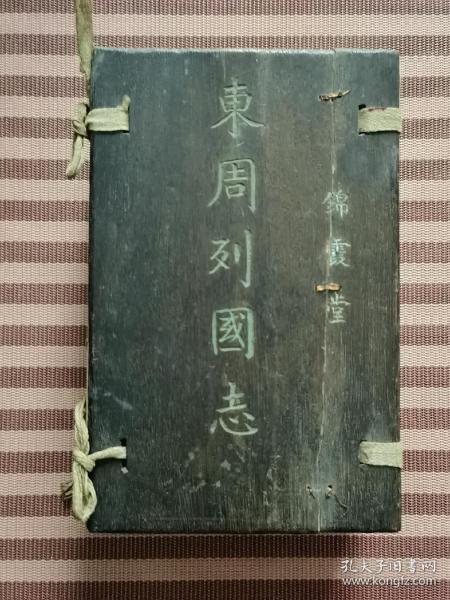 東周列國志
錦霞堂
孔夫子旧书网
www.kongfz.com